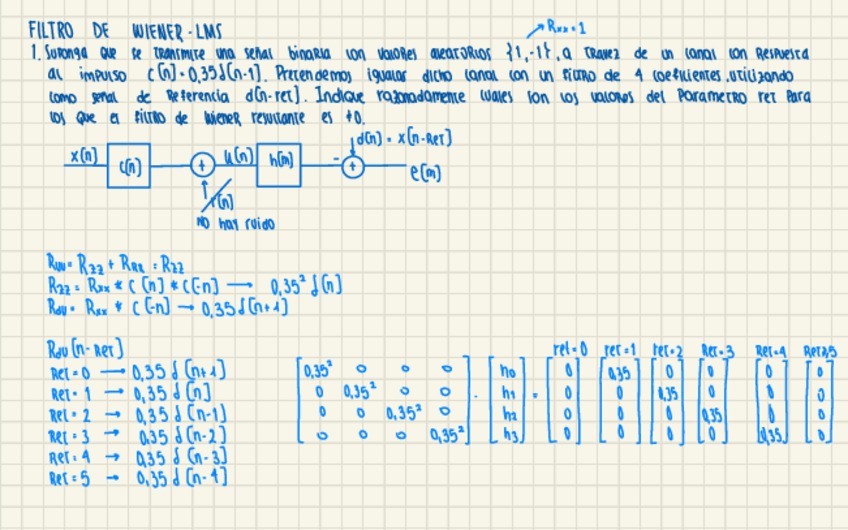 FILTRO DE WIENER-LMS
Rxx=1
1. Suponga que se transmite una señal binaria con valores aleatorios {1,-1}, a travez de un canal con respuesta
al impulso c[n]=0,35δ[n-1]. Pretendemos igualar dicho canal con un filtro de 4 coeficientes, utilizando
como señal de referencia d[n-ret]. Indique razonadamente cuales son los valores del parametro ret para
los que el filtro de Wiener resultante es ≠0.
d[n] = x[n-Ret]
x[n] c[n] + u[n] h[n] - + e[n]
r[n]
NO hay ruido
Ruu= Rzz + RRR = Rzz
Rzz = Rxx * c[n] * c[-n] → 0,35² δ[n]
Rdu= Rxx * c[-n] → 0,35δ[n+1]
Rdu[n-Ret]
Ret=0 → 0,35 δ[n+1]
Ret=1 → 0,35 δ[n]
Ret=2 → 0,35 δ[n-1]
Ret=3 → 0,35 δ[n-2]
Ret=4 → 0,35 δ[n-3]
Ret=5 → 0,35 δ[n-4]
ret=0 ret=1 ret=2 Ret=3 Ret=4 Ret≥5
0,35² 0 0 0 h0 0 0,35 0 0 0 0
0 0,35² 0 0 · h1 = 0 0 0,35 0 0 0
0 0 0,35² 0 h2 0 0 0 0,35 0 0
0 0 0 0,35² h3 0 0 0 0 0,35 0